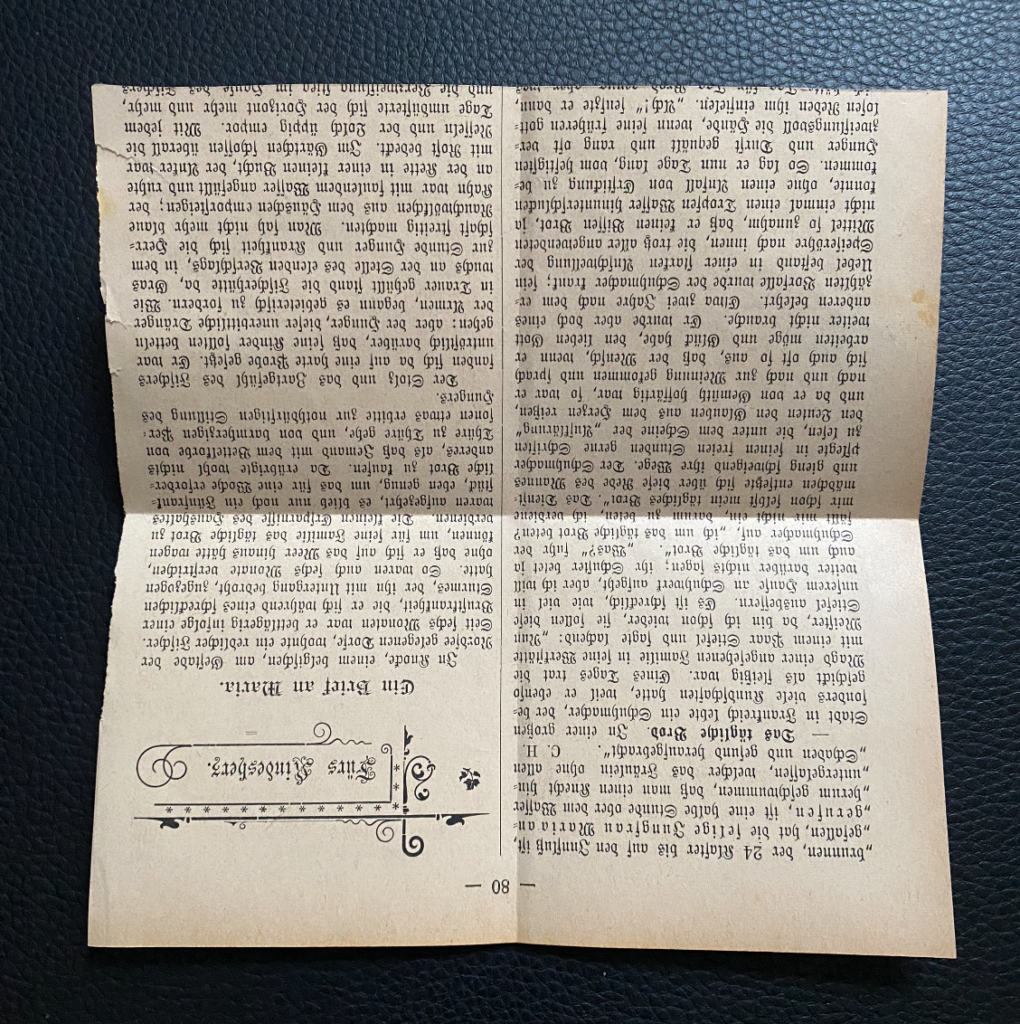 — 80 —
„brunnen, der 24 Klafter bis auf den
„gefallen, hat die selige Jungfrau Maria an=
„gerufen, ist eine halbe Stunde ober dem Wasser
„herum geschwummen, daß man einen Knecht hin=
„untergelassen, welcher das Fräulein ohne allen
„Schaden und gesund heraufgebracht“. C. H.
— Das tägliche Brod. In einer großen
Stadt in Frankreich lebte ein Schuhmacher, der be=
sonders viele Kundschaften hatte, weil er ebenso
geschickt als fleißig war. Eines Tages trat die
Magd einer angesehenen Familie in seine Werkstätte
mit einem Paar Stiefel und sagte lachend: „Nun
Meister, da bin ich schon wieder, sie sollen diese
Stiefel ausbessern. Es ist schrecklich, wie viel in
unserem Hause an Schuhwerk aufgeht, aber ich will
weiter darüber nichts sagen; ihr Schuster betet ja
auch um das tägliche Brot“. „Was?“ fuhr der
Schuhmacher auf, „ich um das tägliche Brot beten?
fällt mir nicht ein, darum zu beten, ich verdiene
mir schon selbst mein tägliches Brot“. Das Dienst=
mädchen entsetzte sich über diese Rede des Mannes
und gieng schweigend ihre Wege. Der Schuhmacher
pflegte in seinen freien Stunden gerne Schriften
zu lesen, die unter dem Scheine der „Aufklärung“
den Leuten den Glauben aus dem Herzen reißen,
und da er von Gemüth hoffärtig war, so war er
nach und nach zur Meinung gekommen und sprach
sich auch oft so aus, daß der Mensch, wenn er
arbeiten möge und Glück habe, den lieben Gott
weiter nicht brauche. Er wurde aber doch eines
anderen belehrt. Etwa zwei Jahre nach dem er=
zählten Vorfalle wurde der Schuhmacher krank; sein
Uebel bestand in einer starken Anschwellung der
Speiseröhre nach innen, die trotz aller angewendeten
Mittel so zunahm, daß er keinen Bissen Brot, ja
nicht einmal einen Tropfen Wasser hinunterschlucken
konnte, ohne einen Anfall von Erstickung zu be=
kommen. So lag er nun Tage lang, vom heftigsten
Hunger und Durst gequält und rang oft ver=
zweiflungsvoll die Hände, wenn seine früheren gott=
losen Reden ihm einfielen. „Ach!“ seufzte er dann,
Fürs Kindesherz.
Ein Brief an Maria.
In Knocke, einem belgischen, am Gestade der
Nordsee gelegenen Dorfe, wohnte ein redlicher Fischer.
Seit sechs Monaten war er bettlägerig infolge einer
Brustkrankheit, die er sich während eines schrecklichen
Sturmes, der ihn mit Untergang bedroht, zugezogen
hatte. So waren auch sechs Monate verstrichen,
ohne daß er sich auf das Meer hinaus hätte wagen
können, um für seine Familie das tägliche Brot zu
verdienen. Die kleinen Ersparnisse des Haushaltes
waren aufgezehrt, es blieb nur noch ein Fünffrank=
stück, eben genug, um das für eine Woche erforder=
liche Brot zu kaufen. Da erübrigte wohl nichts
anderes, als daß Jemand mit dem Bettelkorbe von
Thüre zu Thüre gehe, und von barmherzigen Per=
sonen etwas erbitte zur nothdürftigen Stillung des
Hungers.
Der Stolz und das Zartgefühl des Fischers
fanden sich da auf eine harte Probe gesetzt. Er war
untröstlich darüber, daß seine Kinder sollten betteln
gehen: aber der Hunger, dieser unerbittliche Dränger
der Armen, begann es gebieterisch zu fordern. Wie
in Trauer gehüllt stand die Fischerhütte da, Gras
wuchs an der Stelle des elenden Verschlags, in dem
zur Stunde Hunger und Krankheit sich die Herr=
schaft streitig machten. Man sah nicht mehr blaue
Rauchwölkchen aus dem Häuschen emporsteigen; der
Kahn war mit faulendem Wasser angefüllt und ruhte
an der Kette in einer kleinen Bucht, der Anker war
mit Rost bedeckt. Im Gärtchen schossen überall die
Nesseln und der Lolch üppig empor. Mit jedem
Tage umdüsterte sich der Horizont mehr und mehr,
und die Verzweiflung stieg im Hause des Fischers